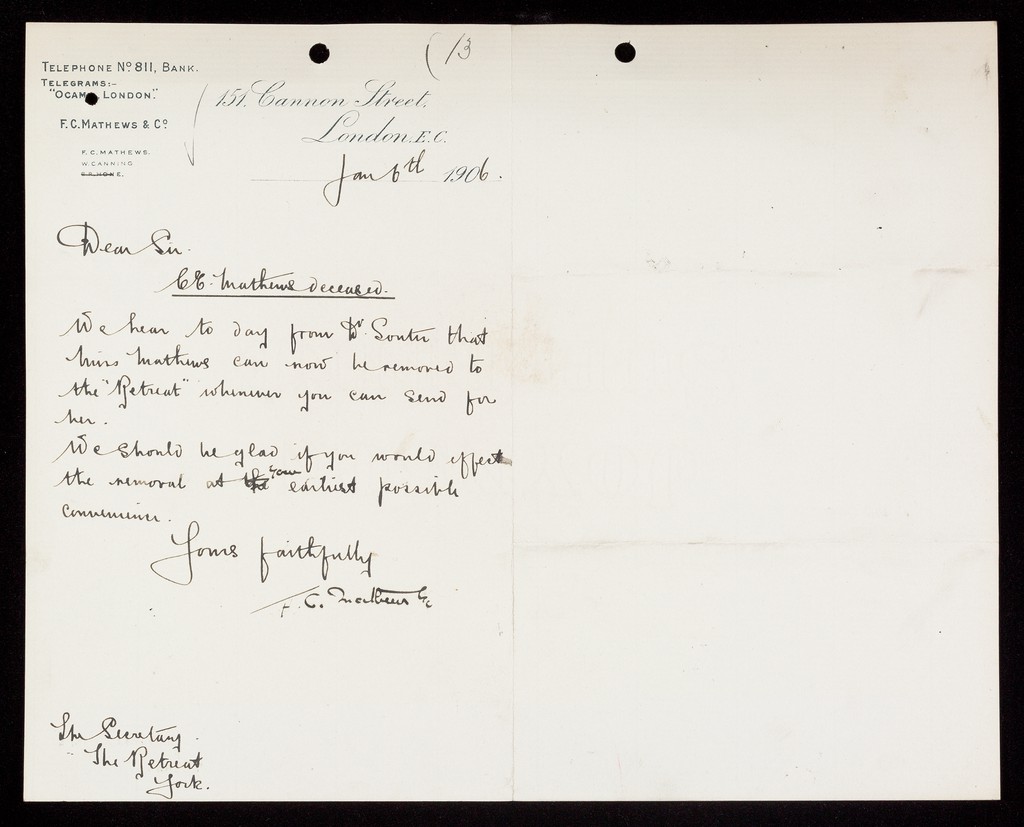 (13
TELEPHONE No 811, BANK.
TELEGRAMS:-
"OCAM LONDON."
F.C. MATHEWS & Co
F. C. MATHEWS.
W. CANNING
151, Cannon Street,
London, E.C.
Jan 6th 1906.
Dear Sir.
C E. Mathews deceased.
We hear to day from Dr. Soutar that
Miss Mathews can now be removed to
the "Retreat" whenever you can send for
her.
We should be glad if you would effect
the removal at your earliest possible
convenience.
Yours faithfully
F. C. Mathews & Co
The Secretary
The Retreat
York.